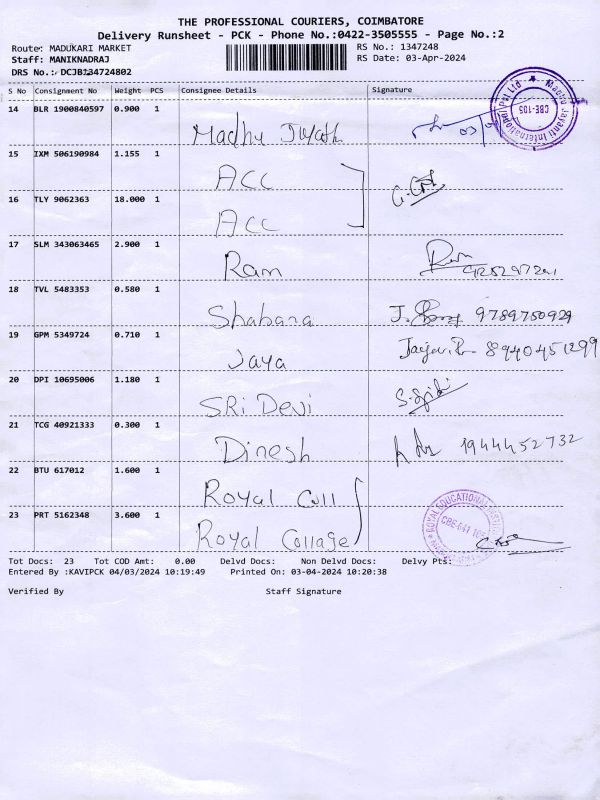 THE PROFESSIONAL COURIERS, COIMBATORE
Delivery Runsheet - PCK - Phone No.:0422-3505555 - Page No.:2
Route: MADUKARI MARKET RS No.: 1347248
Staff: MANIKNADRAJ RS Date: 03-Apr-2024
DRS No.: DCJB134724802
S No Consignment No Weight PCS Consignee Details Signature
14 BLR 1900840597 0.900 1
Madhu
15 IXM 506190984 1.155 1
ACC
16 TLY 9062363 18.000 1
ACC
17 SLM 343063465 2.900 1
Ram
18 TVL 5483353 0.580 1
Shabana 9789750929
19 GPM 5349724 0.710 1
Jaya 8940451299
20 DPI 10695006 1.180 1
SRi Devi
21 TCG 40921333 0.300 1
Dinesh 1944452732
22 BTU 617012 1.600 1
Royal Coll
23 PRT 5162348 3.600 1
Royal Collage
Tot Docs: 23 Tot COD Amt: 0.00 Delvd Docs: Non Delvd Docs: Delvy Pts:
Entered By :KAVIPCK 04/03/2024 10:19:49 Printed On: 03-04-2024 10:20:38
Verified By Staff Signature